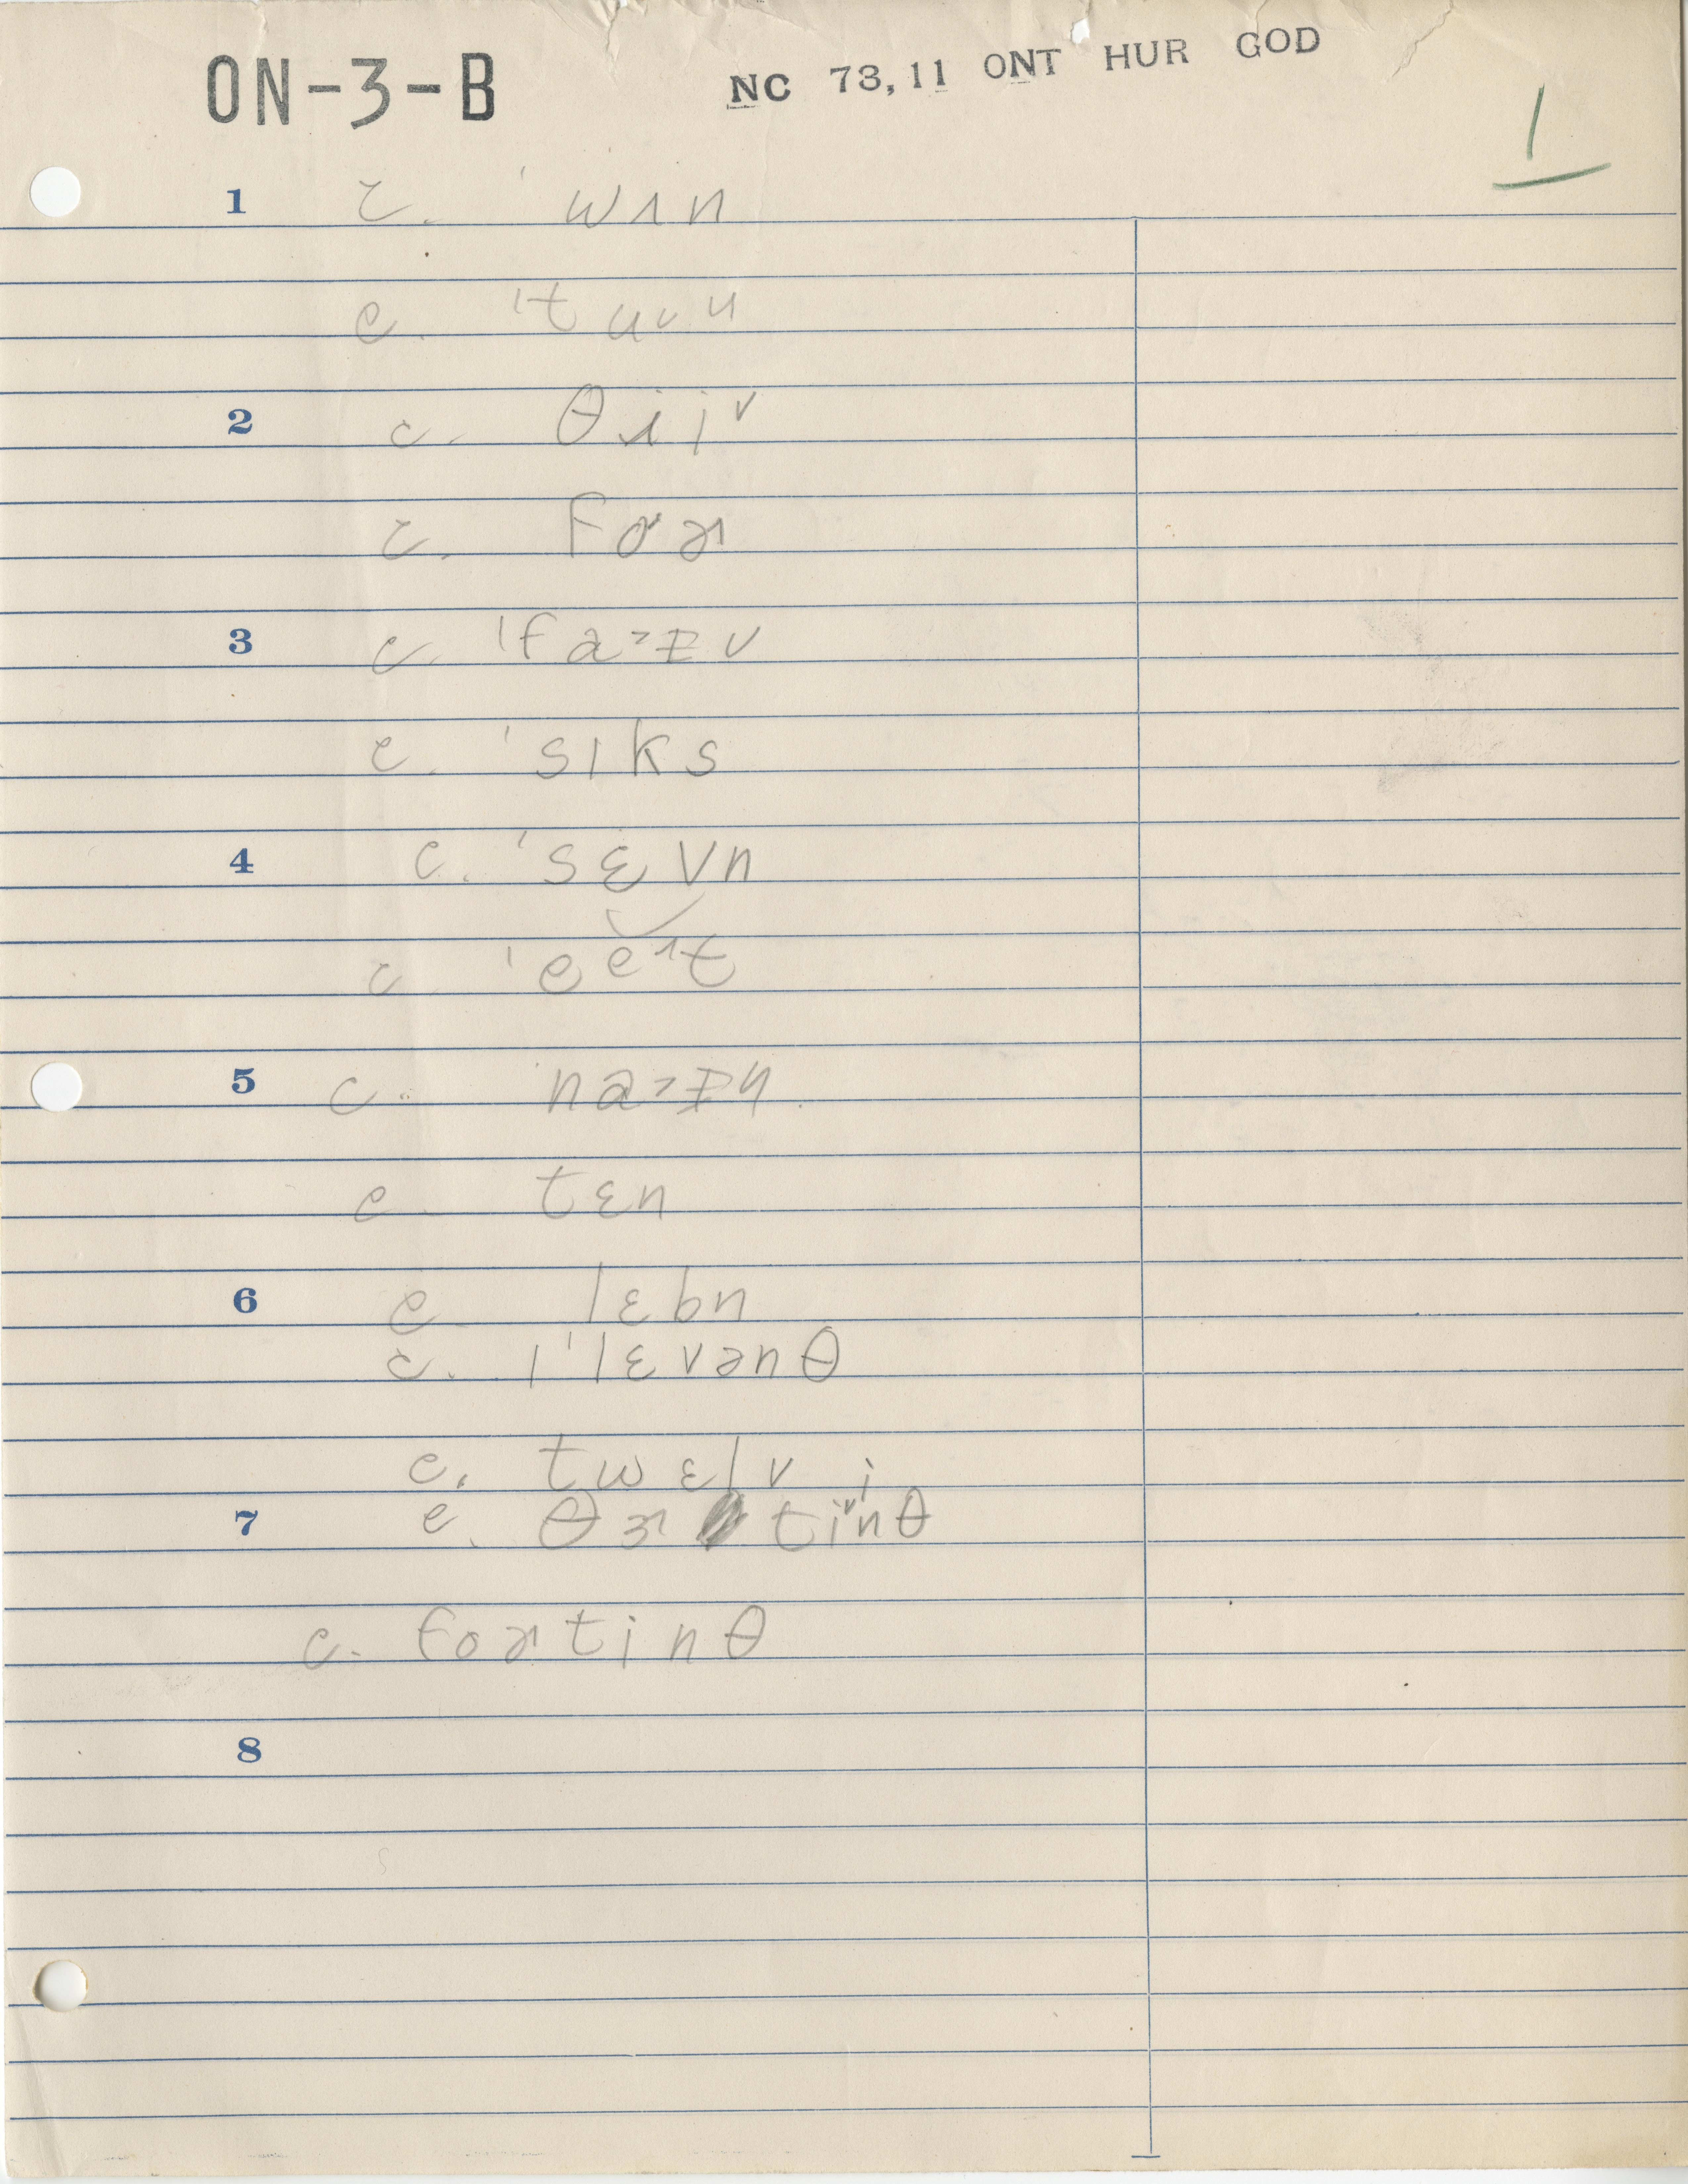 ON-3-B NC 73,11 ONT HUR GOD
1
1 c. ˈwʌn
c. ˈtuᵘu
2 c. θiiᵛ
c. foɚ
3 c. ˈfa˃ɪv
c. ˈsɪks
4 c. ˈsɛvn
c ˈee^t
5 c. ˈna˃ɪn
c. tɛn
6 c. lɛbn
c. ɪˈlɛvənθ
c. twɛlv
7 c. θɝtiᵛnθ
c. foɚtinθ
8